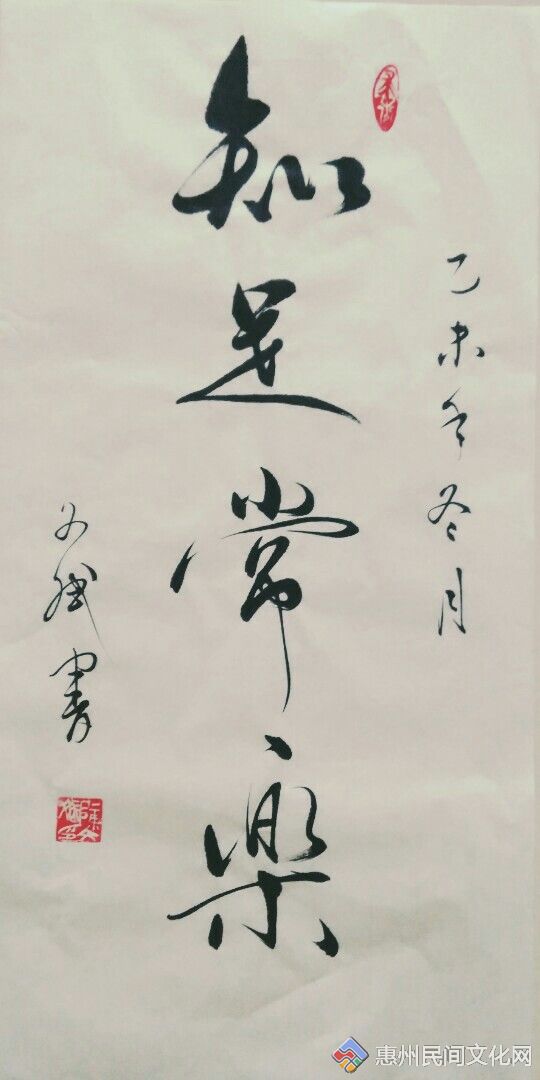 乙未年冬月
知足常樂
書
惠州民间文化网